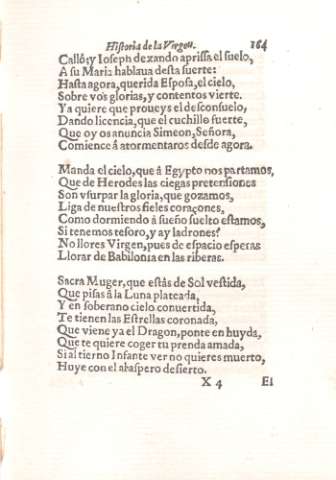 Historia de la Virgen. 164
Calló; y Ioseph dexando aprissa el suelo,
A su Maria hablaua desta suerte:
Hasta agora, querida Esposa, el cielo,
Sobre vos glorias, y contentos vierte.
Ya quiere que proueys el desconsuelo,
Dando licencia, que el cuchillo fuerte,
Que oy os anuncia Simeon, Señora,
Comience á atormentaros desde agora.
Manda el cielo, que á Egypto nos partamos,
Que de Herodes las ciegas pretensiones
Son vsurpar la gloria, que gozamos,
Liga de nuestros fieles coraçones,
Como dormiendo á sueño suelto estamos,
Si tenemos tesoro, y ay ladrones?
No llores Virgen, pues de espacio esperas
Llorar de Babilonia en las riberas.
Sacra Muger, que estás de Sol vestida,
Que pisas á la Luna plateada,
Y en soberano cielo conuertida,
Te tienen las Estrellas coronada,
Que viene ya el Dragon, ponte en huyda,
Que te quiere coger tu prenda amada,
Si al tierno Infante ver no quieres muerto,
Huye con el al aspero desierto.
X 4 El